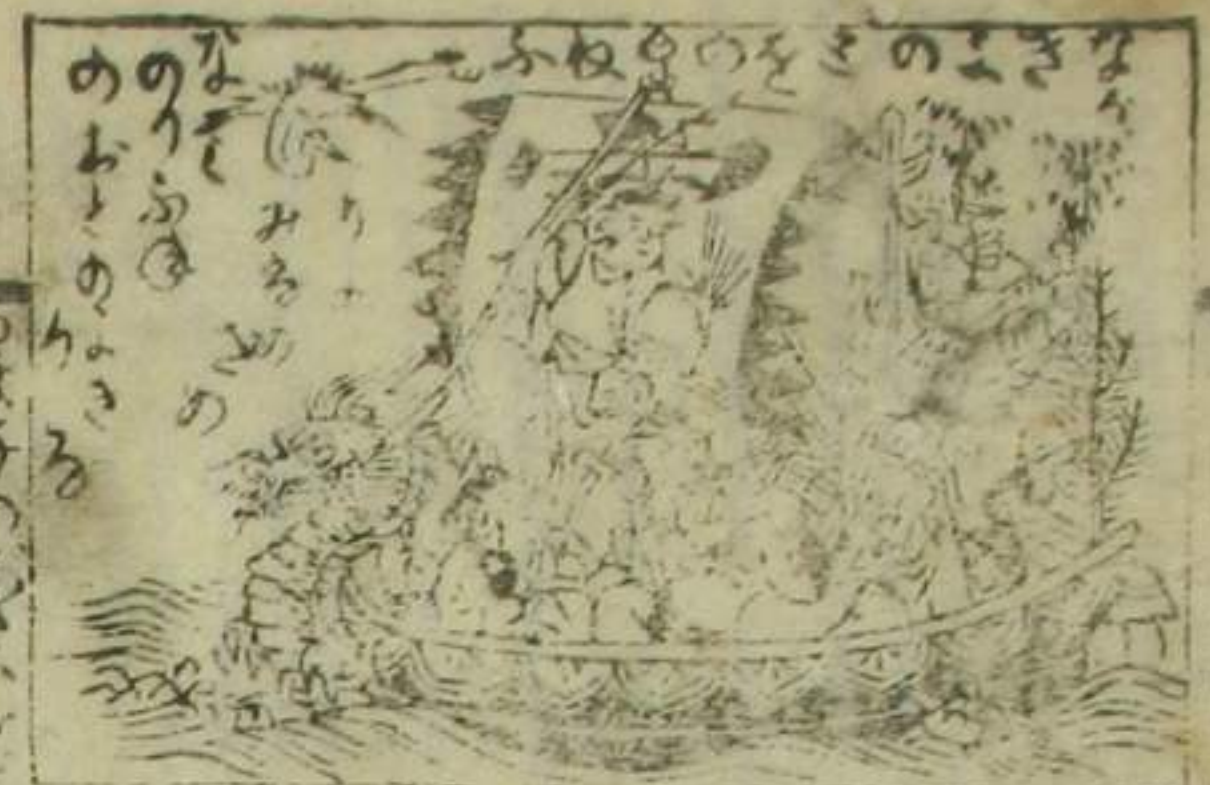 なかきよのとをのねふ
りの
みな
めざめ
なみ
のりふね
のおとのよき
かな